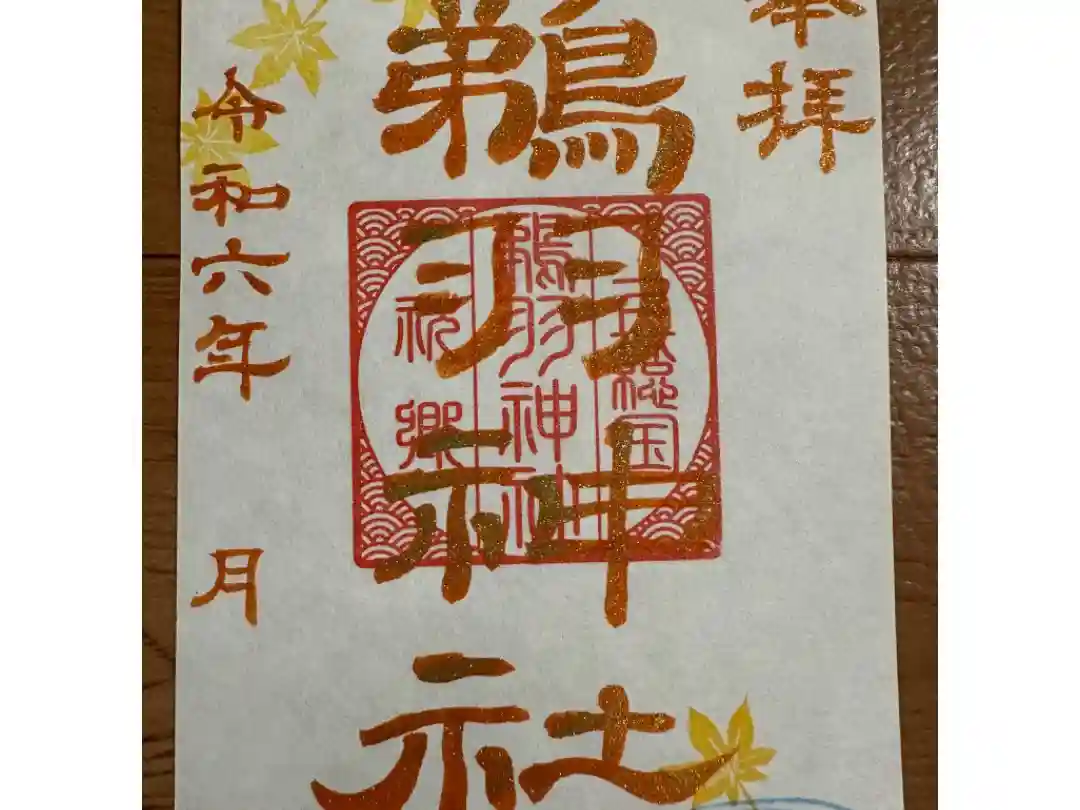 奉拝
鵜羽神社
総国
鵜羽神社
祝郷
令和六年 月